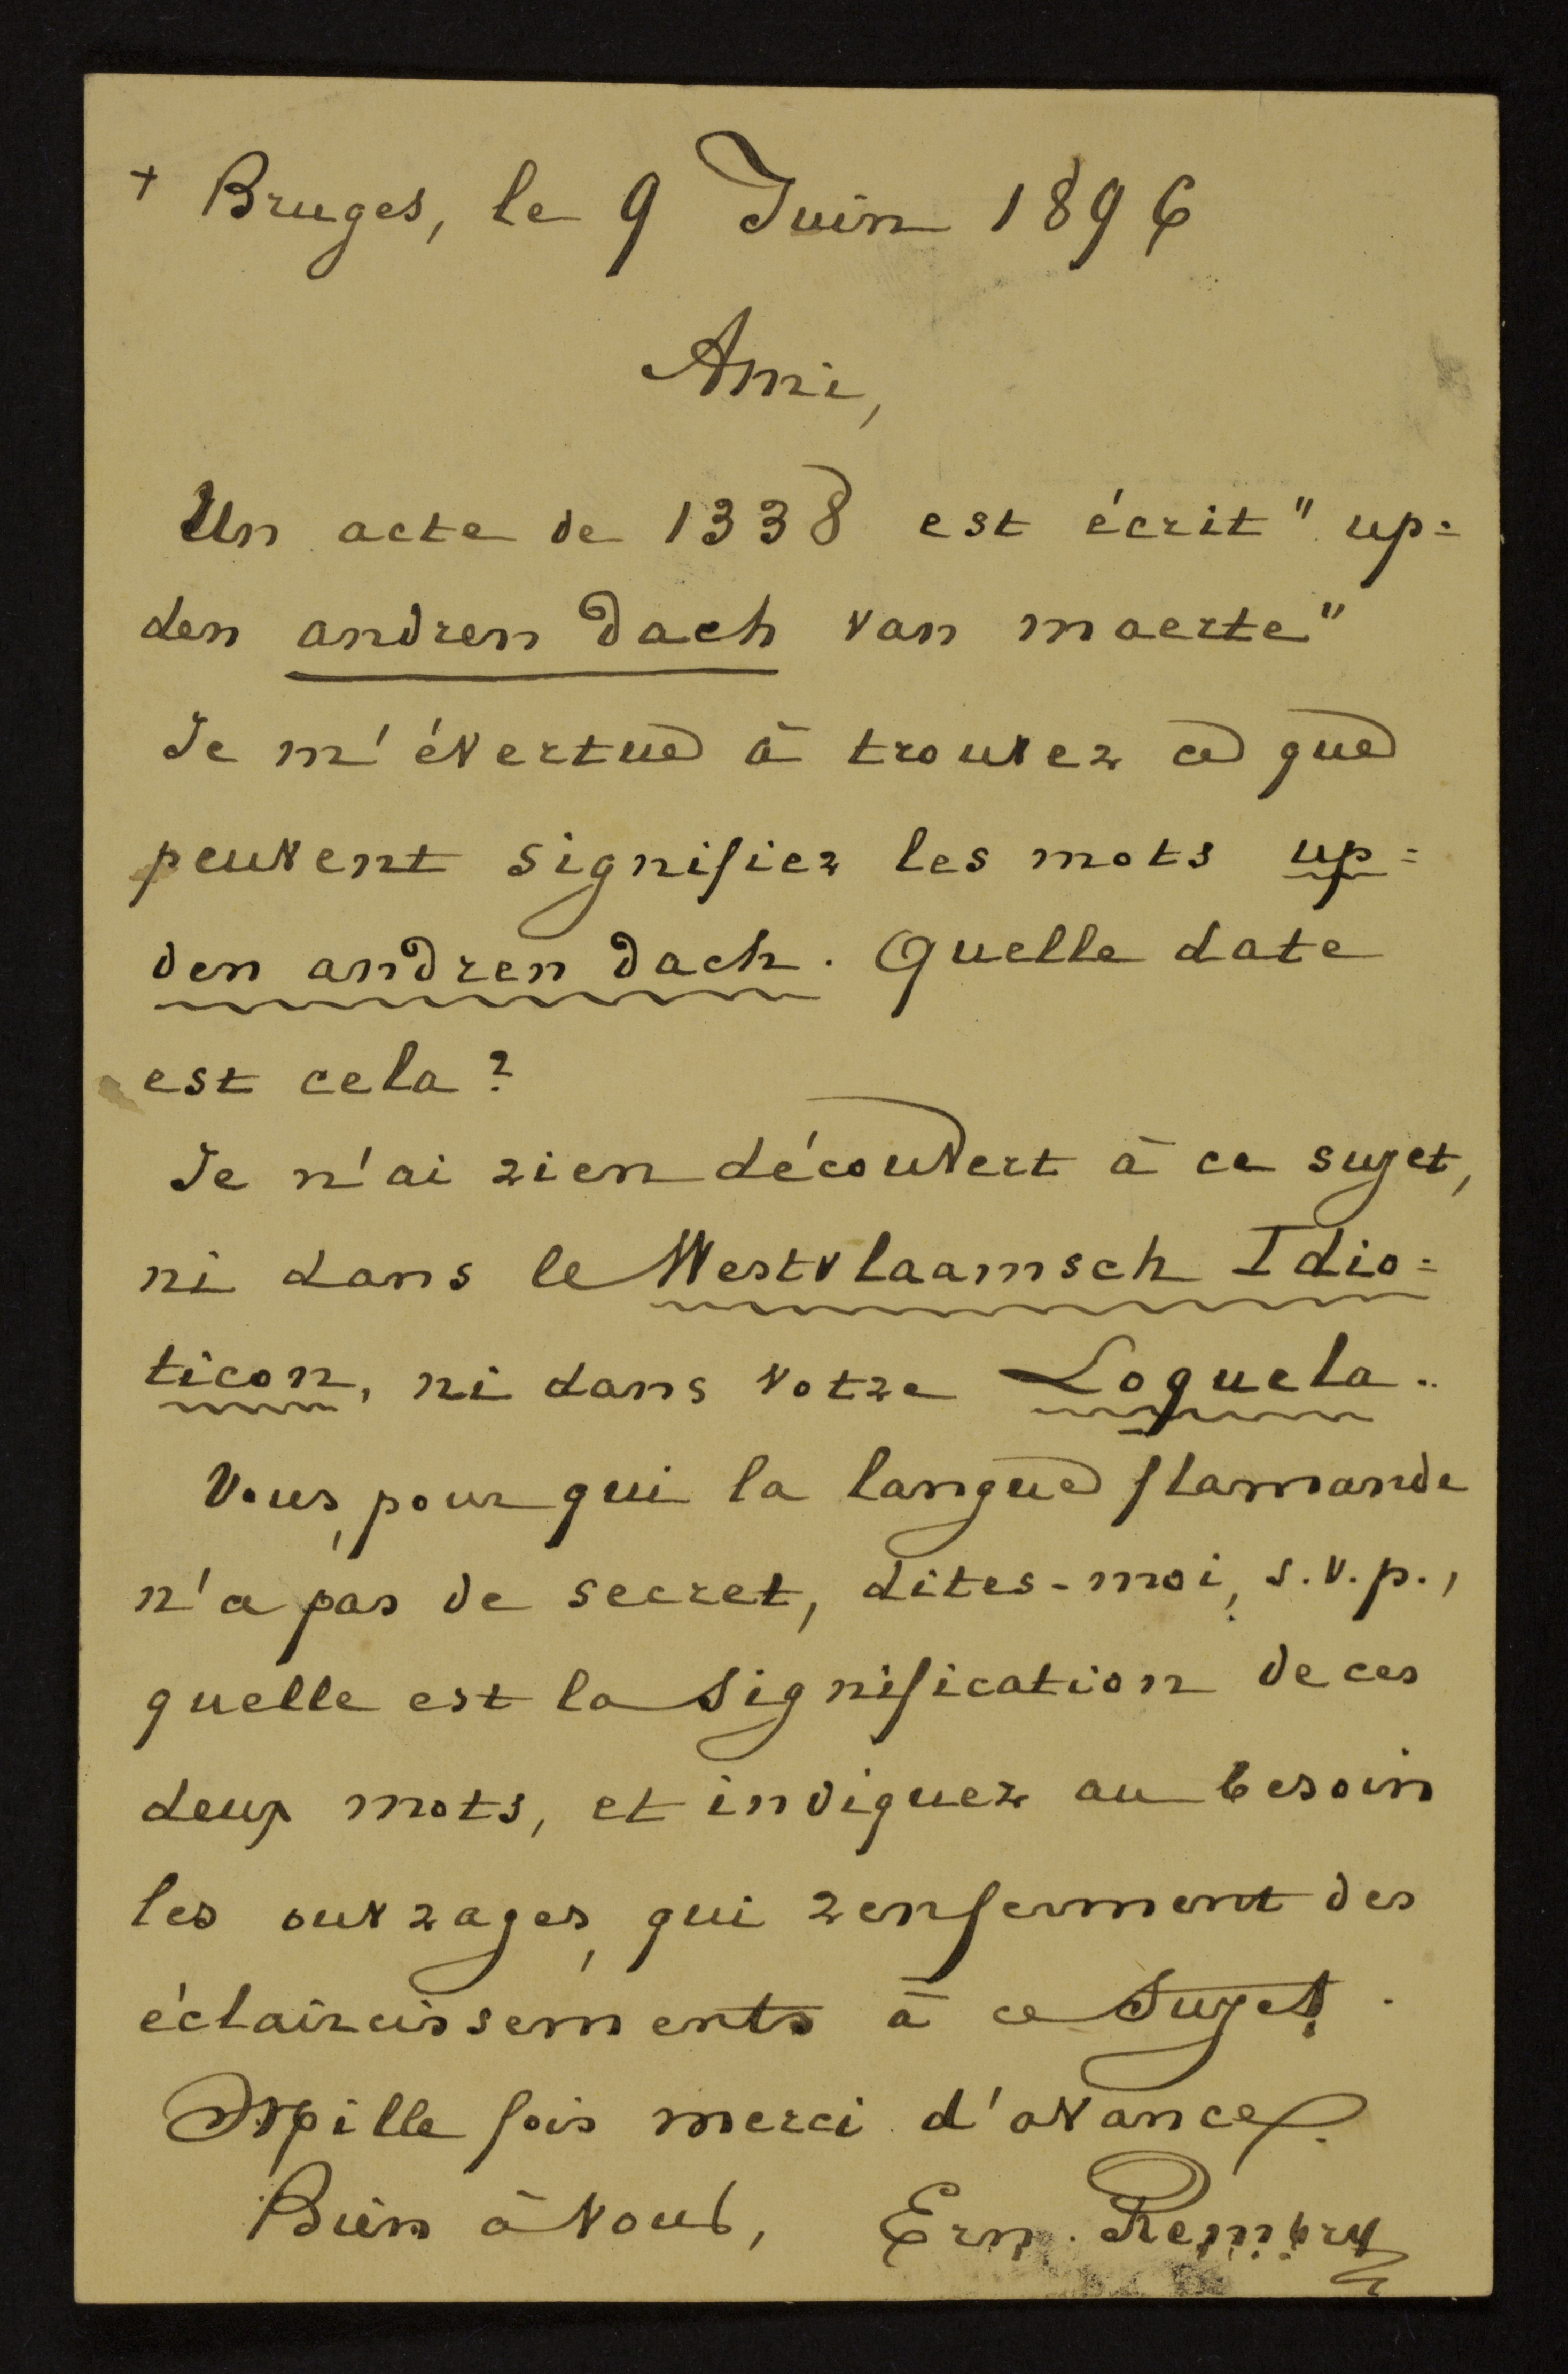 + Bruges, le 9 Juin 1896
Ami,
Un acte de 1338 est écrit " up=
den andren dach van maerte"
Je m'évertue à trouver ce que
peuvent signifier les mots up=
den andren dach. Quelle date
est cela ?
Je n'ai rien découvert à ce sujet,
ni dans le Westvlaamsch Idio=
ticon, ni dans votre Loquela.
Vous, pour qui la langue flamande
n'a pas de secret, dites-moi, s.v.p.,
quelle est la signification de ces
deux mots, et indiquez au besoin
les ouvrages, qui renferment des
éclaircissements à ce sujet.
Mille fois merci d'avance.
Bien à vous, Ern. Rembry